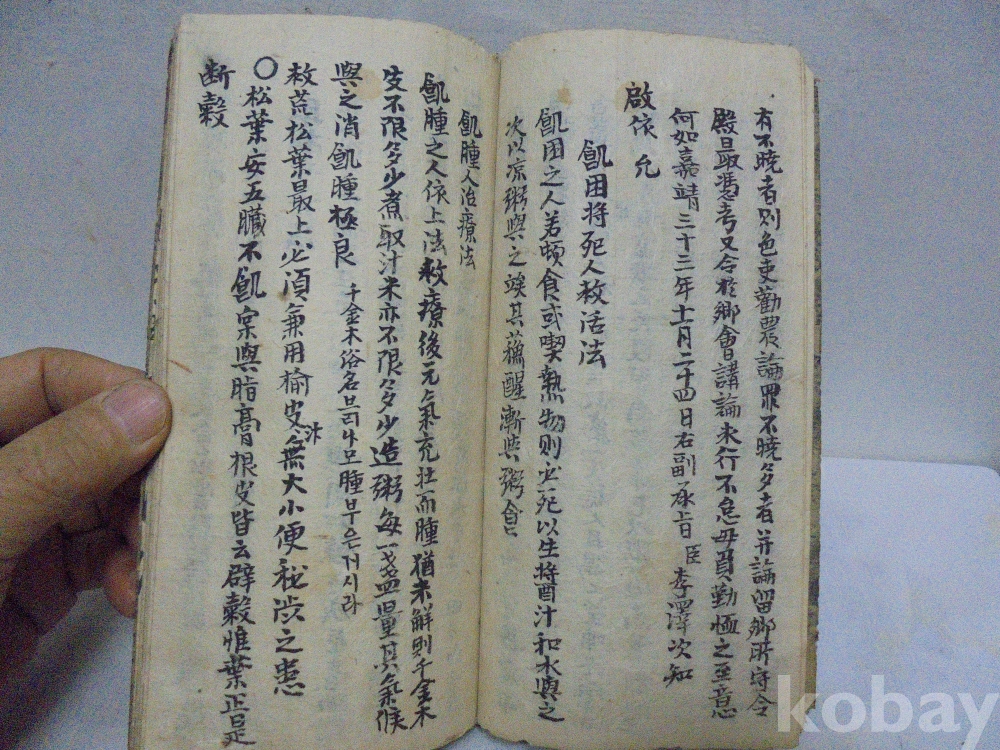 有不曉者則色吏勸農論罪不曉多者并論留鄕所守令
殿最憑考又令於鄕會講論米行不怠毋負勤恤之至意
何如嘉靖三十三年十一月二十四日右副承旨臣李澤次知
啟依允
飢困将死人救活法
飢困之人若頓食或喫熱物則必死以生醬汁和水與之
次以凉粥與之竢其蘓醒漸與粥食
飢腫人治療法
飢腫之人依上法救療後元氣充壮而腫猶未解則千金木
皮不限多少煮取汁米亦不限多少造粥每一盞量其氣候
與之消飢腫極良 千金木俗名브릐나모腫부은거시라
救荒松葉最上必湏兼用楡皮汁無大小便秘澁之患
〇松葉安五臓不飢宗與脂膏根皮皆云辟糓惟葉正是
断糓
kobay